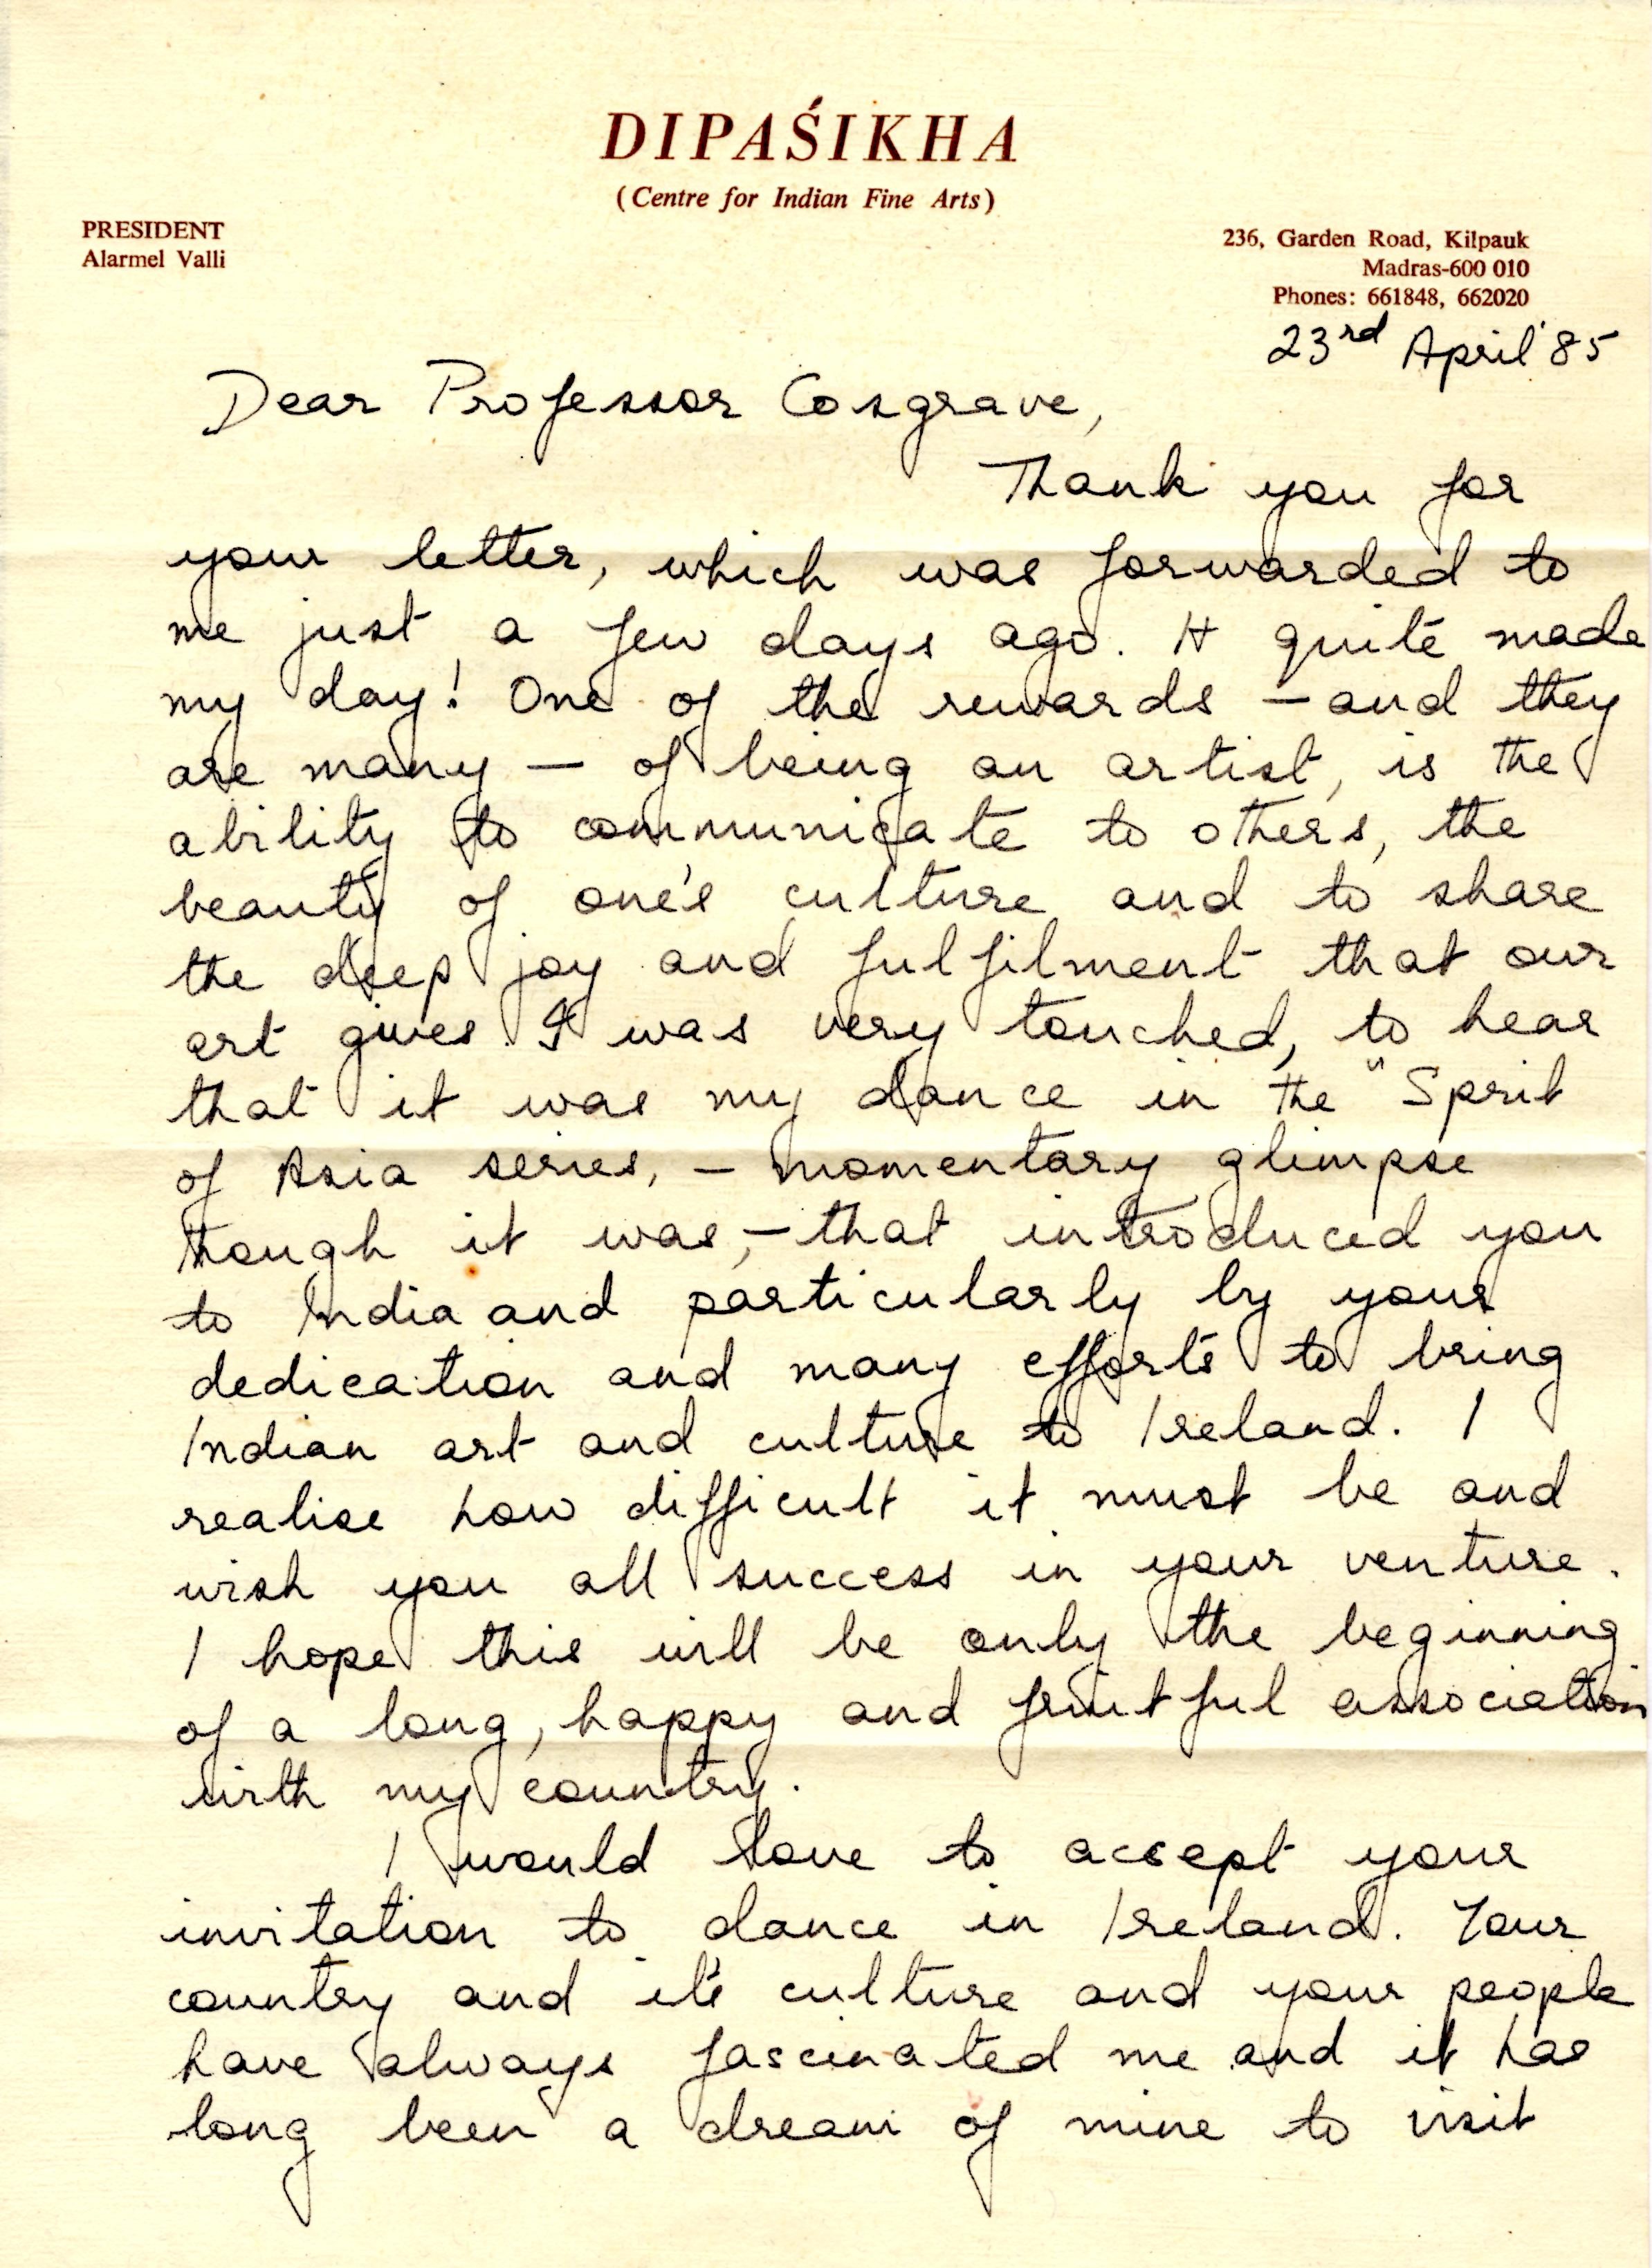 DIPAŚIKHA
(Centre for Indian Fine Arts)
PRESIDENT
Alarmel Valli
236, Garden Road, Kilpauk
Madras-600 010
Phones: 661848, 662020
23rd April '85
Dear Professor Cosgrave,
Thank you for
your letter, which was forwarded to
me just a few days ago. It quite made
my day! One of the rewards – and they
are many – of being an artist, is the
ability to communicate to others, the
beauty of one's culture and to share
the deep joy and fulfilment that our
art gives. I was very touched, to hear
that it was my dance in the "Sprit
of Asia series, – momentary glimpse
though it was, – that introduced you
to India and particularly by your
dedication and many efforts to bring
Indian art and culture to Ireland. I
realise how difficult it must be and
wish you all success in your venture.
I hope this will be only the beginning
of a long, happy and fruitful association
with my country.
I would love to accept your
invitation to dance in Ireland. Your
country and it's culture and your people
have always fascinated me and it has
long been a dream of mine to visit